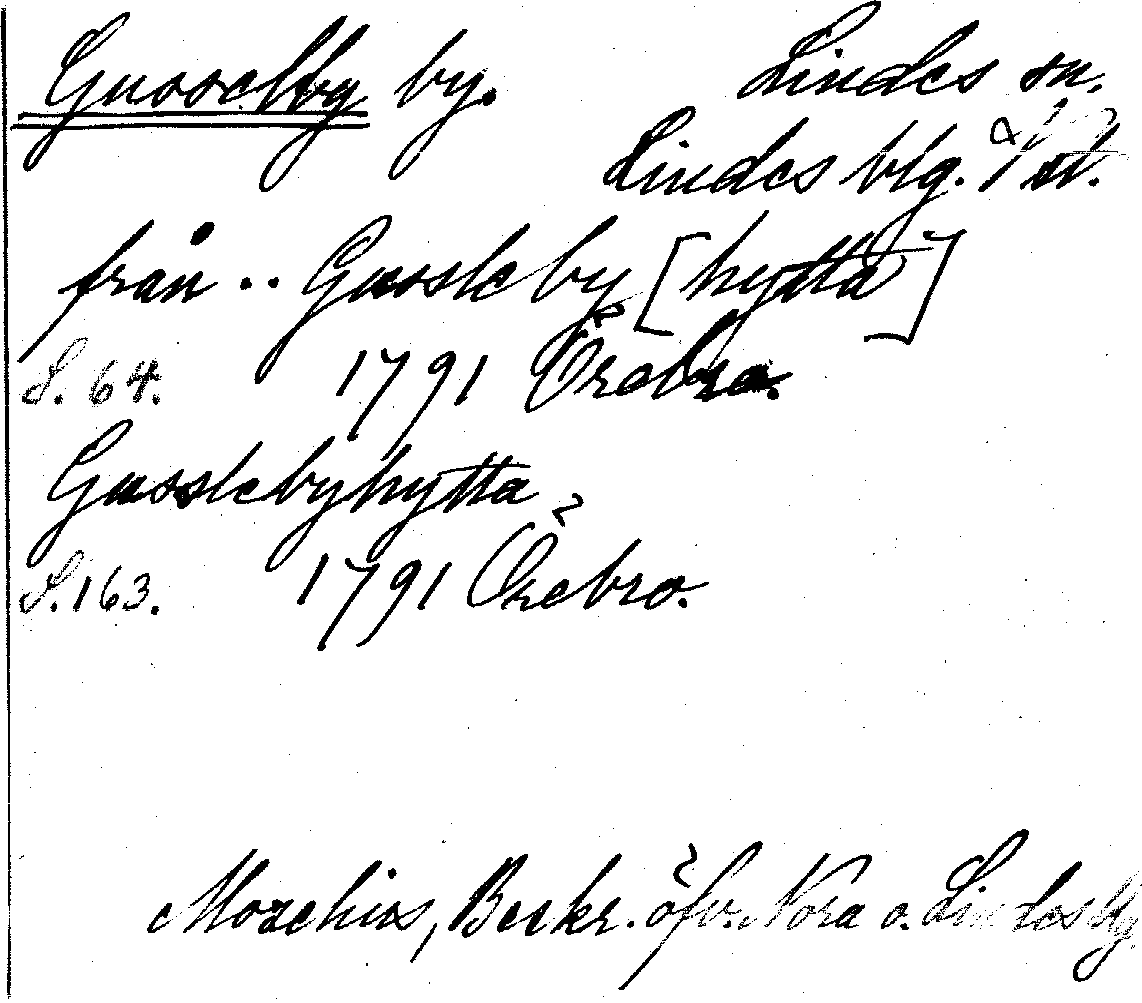 Gusselby by. Lindes sn.
Lindes blg. st.
från .. Gussleby [hytta]
S. 64. 1791 Örebro.
Gusslebyhytta
S. 163. 1791 Örebro.
Morchius, Beskr. öfv. Nora o. Lindes blg.